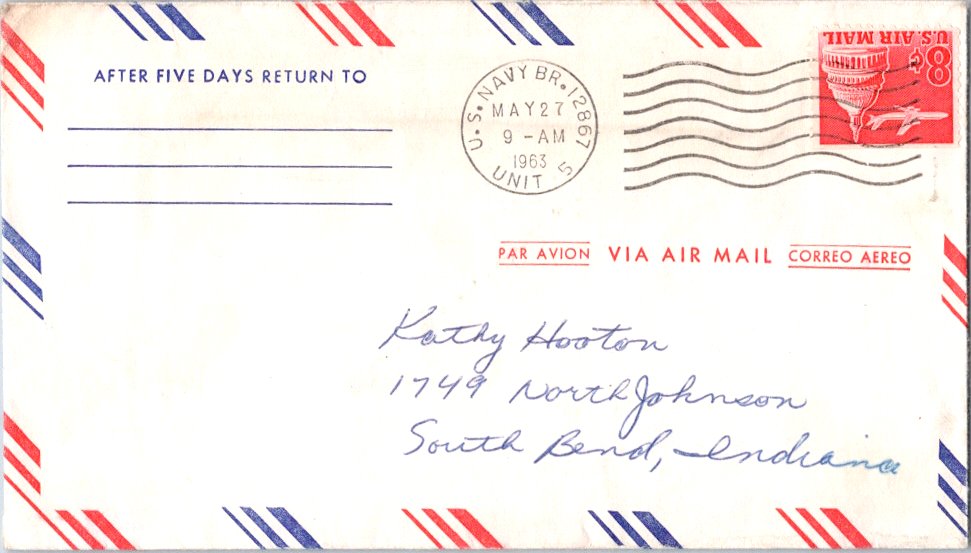 AFTER FIVE DAYS RETURN TO
U.S. NAVY BR. 12867
MAY 27
9 - AM
1963
UNIT 5
U.S. AIR MAIL
8¢
PAR AVION VIA AIR MAIL CORREO AEREO
Kathy Hooton
1749 North Johnson
South Bend, Indiana